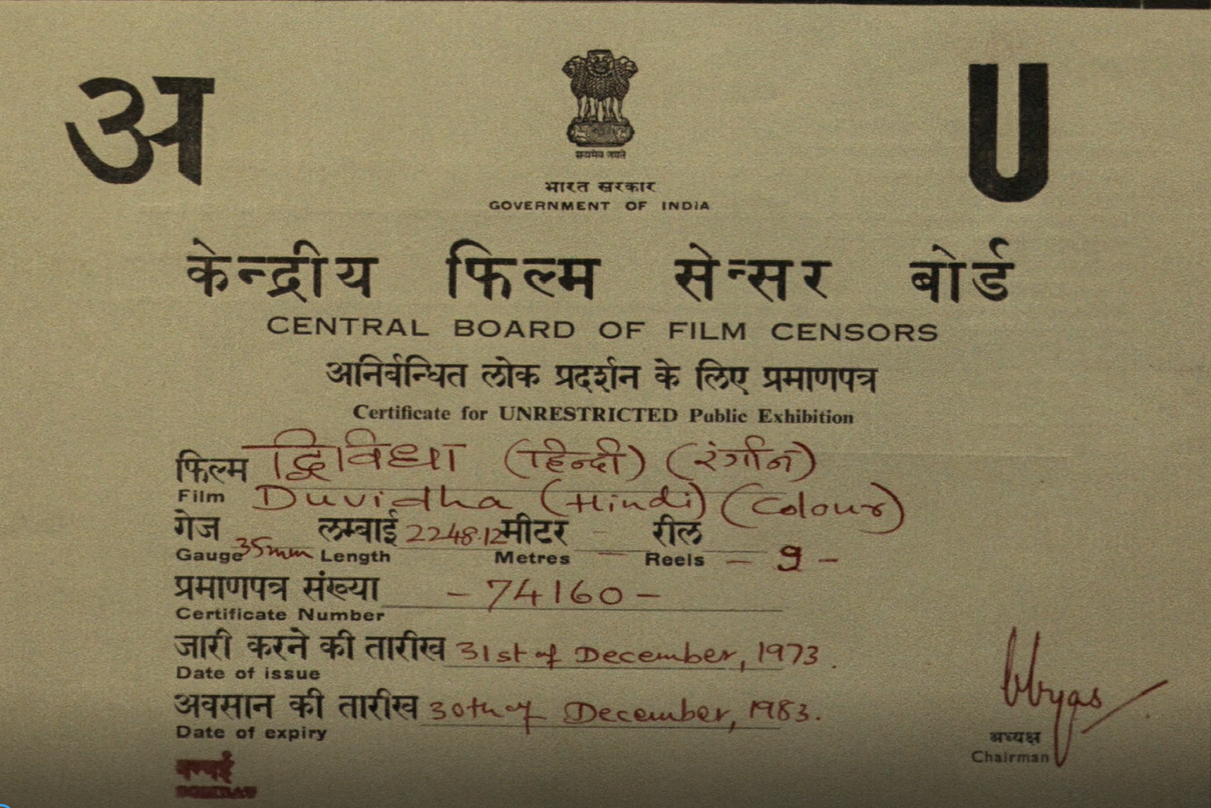 अ
U
सत्यमेव जयते
भारत सरकार
GOVERNMENT OF INDIA
केन्द्रीय फिल्म सेन्सर बोर्ड
CENTRAL BOARD OF FILM CENSORS
अनिर्बन्धित लोक प्रदर्शन के लिए प्रमाणपत्र
Certificate for UNRESTRICTED Public Exhibition
फिल्म द्विविधा (हिन्दी) (रंगीन)
Film Duvidha (Hindi) (Colour)
गेज लम्बाई 2248.12 मीटर - रील
Gauge 35mm Length Metres - Reels - 9 -
प्रमाणपत्र संख्या - 74160 -
Certificate Number
जारी करने की तारीख 31st of December, 1973.
Date of issue
अवसान की तारीख 30th of December, 1983.
Date of expiry
bbyas
अध्यक्ष
Chairman
बम्बई
BOMBAY